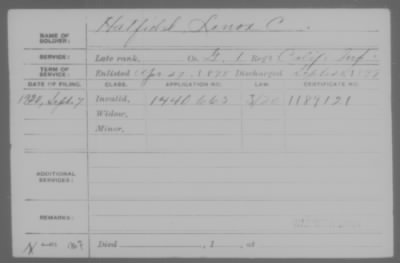 NAME OF SOLDIER: Hatfield, Lenox C.
SERVICE: Late rank, Co. G, 1 Reg't Calif. Inf.
TERM OF SERVICE: Enlisted 1898 Discharged
DATE OF FILING. CLASS. APPLICATION NO. LAW. CERTIFICATE NO.
1920, Sept. 7 Invalid, 1440.662 1189121
Widow,
Minor,
ADDITIONAL SERVICES:
REMARKS:
Died , 1 , at